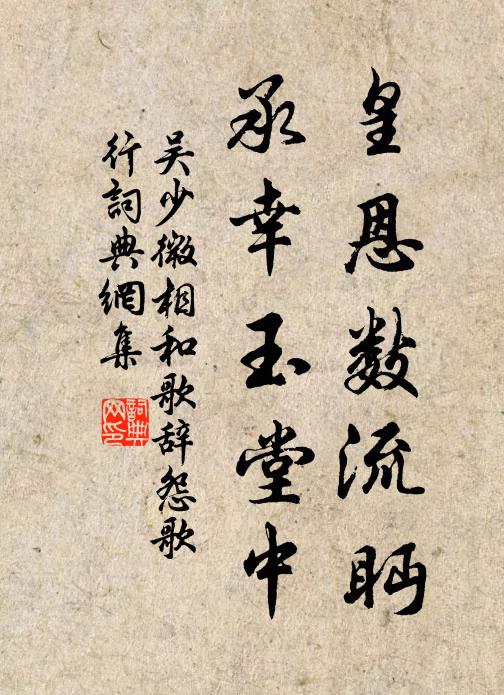 皇恩数流眄
承幸玉堂中
吴少微相和歌辞怨歌
行词典網集
詞典
网印